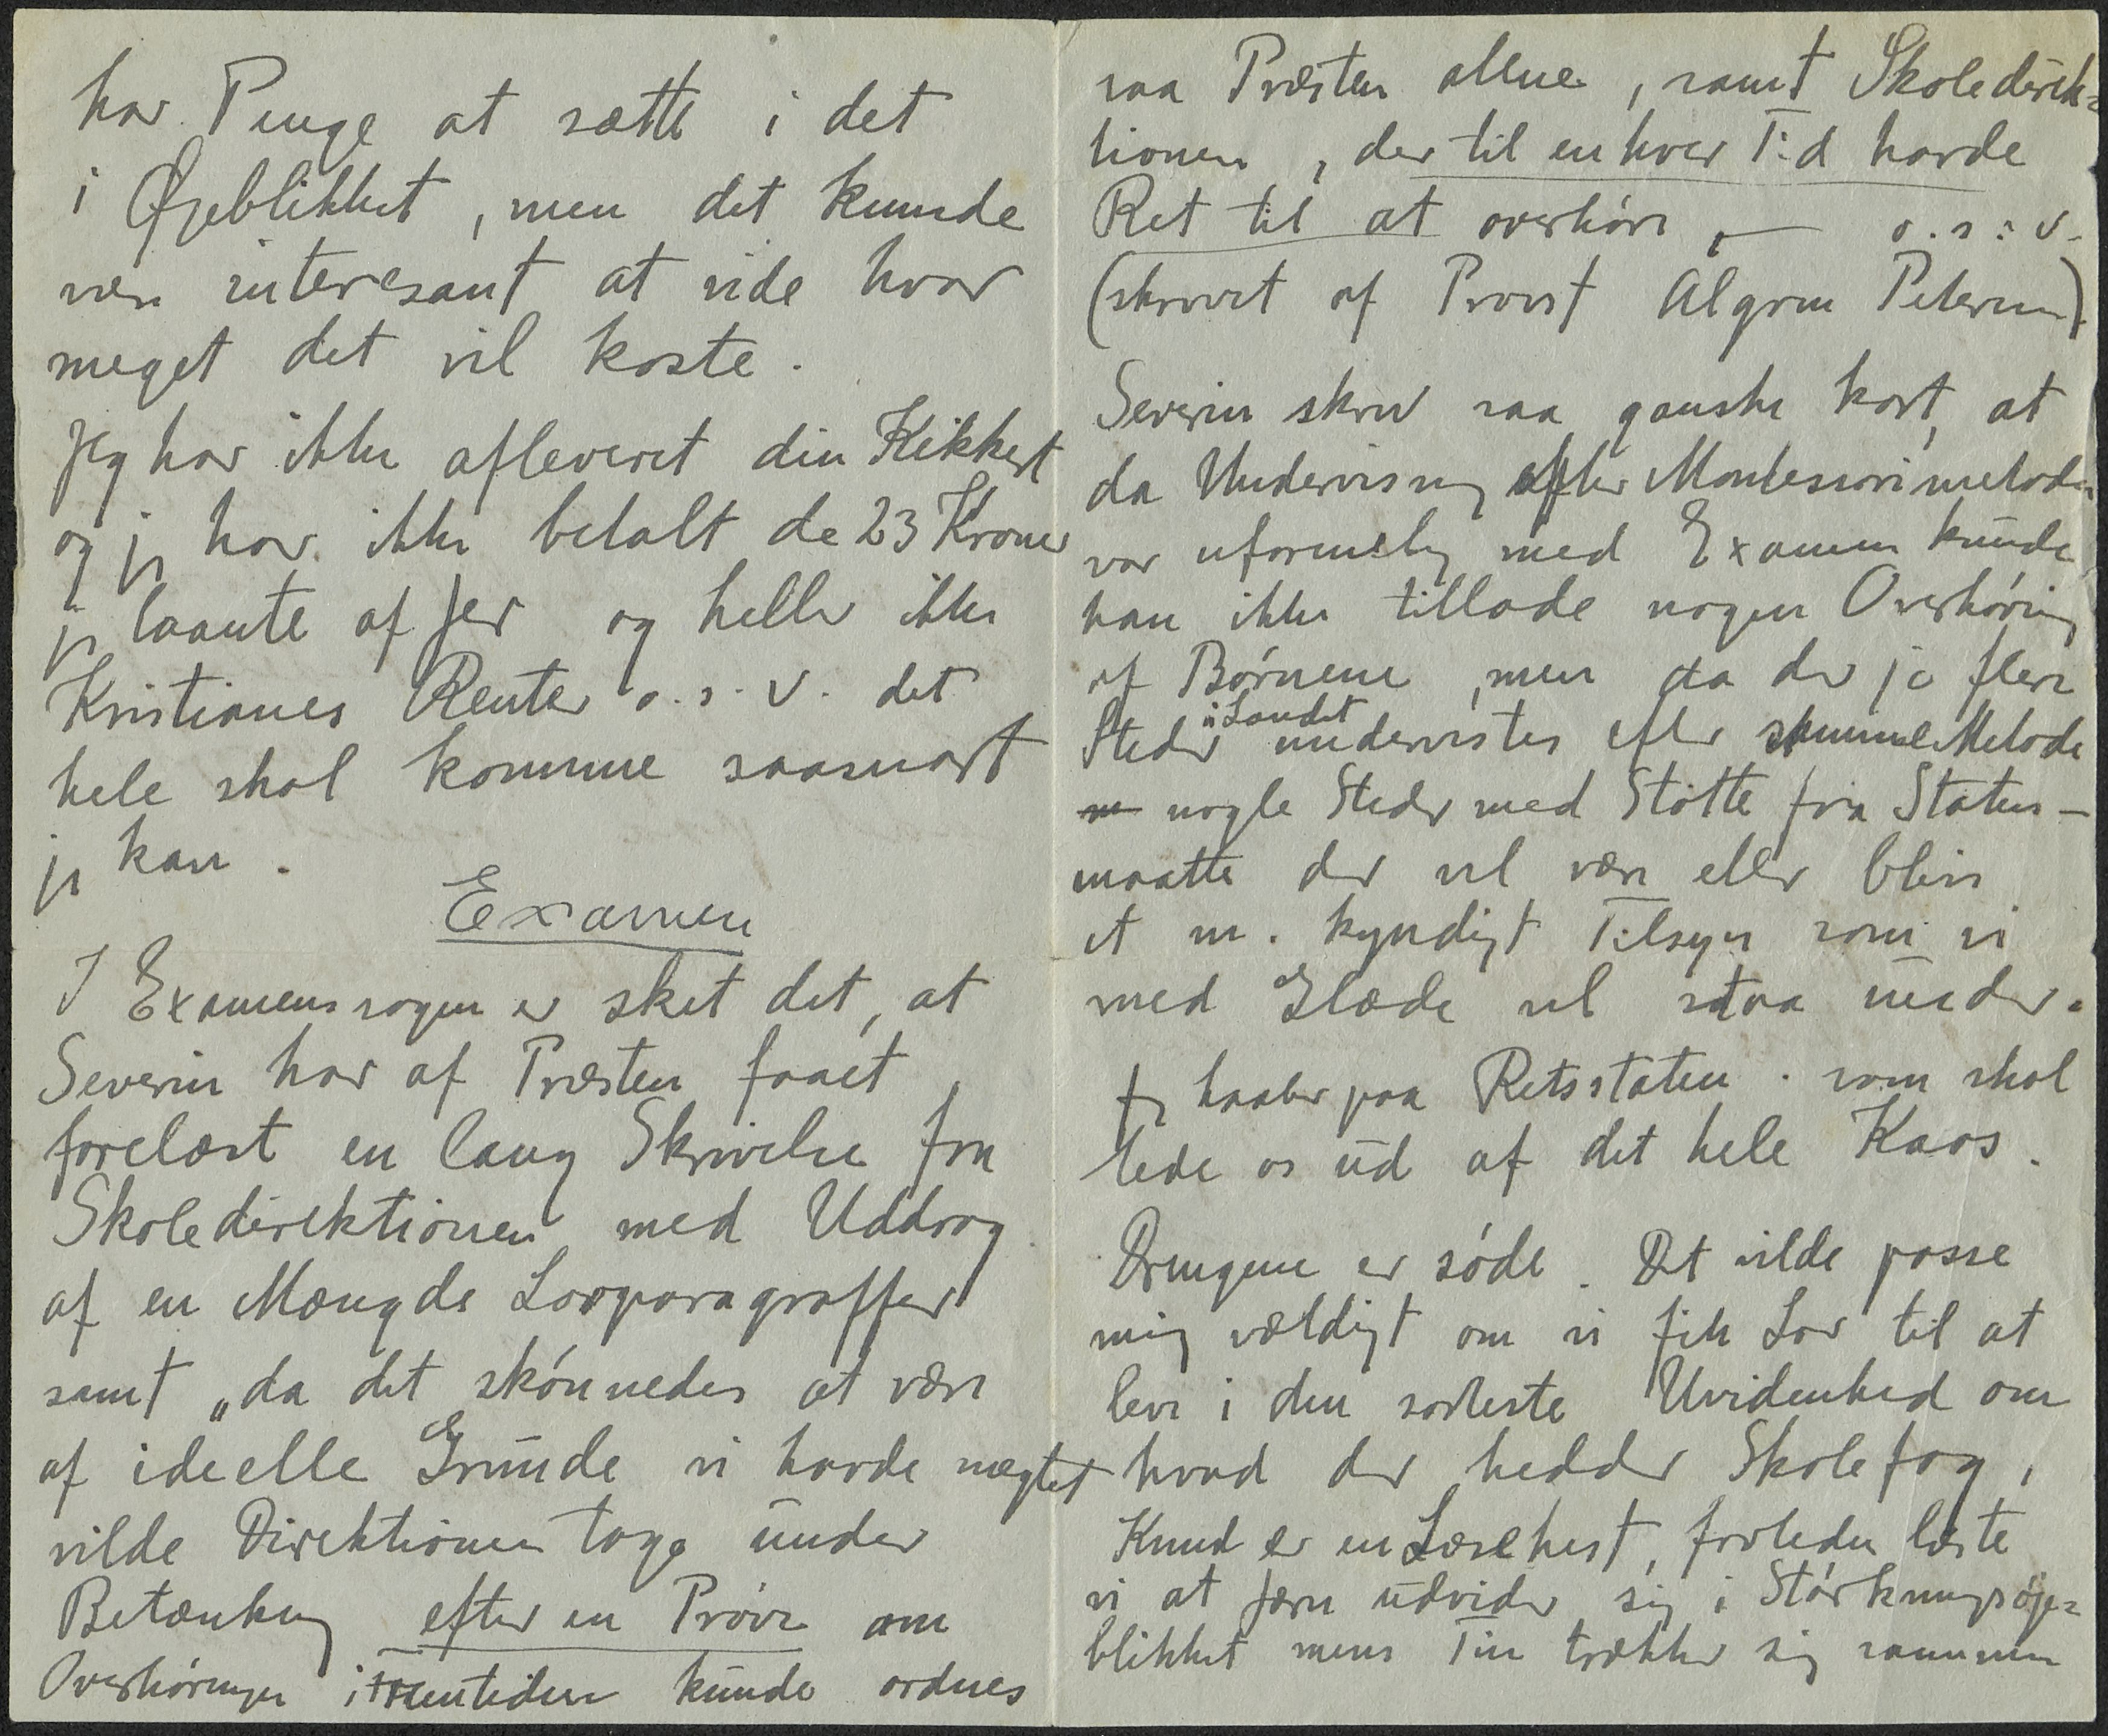 har Penge at sætte i det
i Øjeblikket, men det kunde
være interesant at vide hvor
meget det vil koste.
Jeg har ikke afleveret din Kikkert
og jeg har ikke betalt de 23 Kroner
jeg laante af Jer og heller ikke
Kristianes Renter o.s.v. det
hele skal komme saasnart
jeg kan.
Examen
I Examenssagen er sket det, at
Severin har af Præsten faaet
forelæst en lang Skrivelse fra
Skoledirektionen med Uddrag
af en Mængde Lovparagraffer
samt „da det skönnedes at være
af ideelle Grunde vi havde nægtet
vilde Direktionen tage under
Betænkning efter en Prøve om
Overhöringen i Fremtiden kunde ordnes
saa Præsten allene, samt Skoledirek=
tionen, der til enhver Tid havde
Ret til at overhöre, — o.s.v.
(skrevet af Provst Algren Petersen).
Severin skrev saa ganske kort, at
da Undervisning efter Montesorimetoden
var uforenelig med Examen kunde
han ikke tillade nogen Overhöring
af Börnene, men da der jo flere
Steder i Landet undervistes efter samme Metode
nogle Steder med Stötte fra Staten —
maatte der vel være eller blive
et m. kyndigt Tilsyn som vi
med Glæde vil staa under.
Jeg haaber paa Retsstaten. som skal
lede os ud af det hele Kaos.
Drengene er söde. Det vilde passe
mig vældigt om vi fik Lov til at
leve i den sorteste Uvidenhed om
hvad der hedder Skolefag,
Knud er en Læsehest, forleden læste
vi at Jærn udvider sig i Störkningsöje=
blikket mens Tin trækker sig sammen